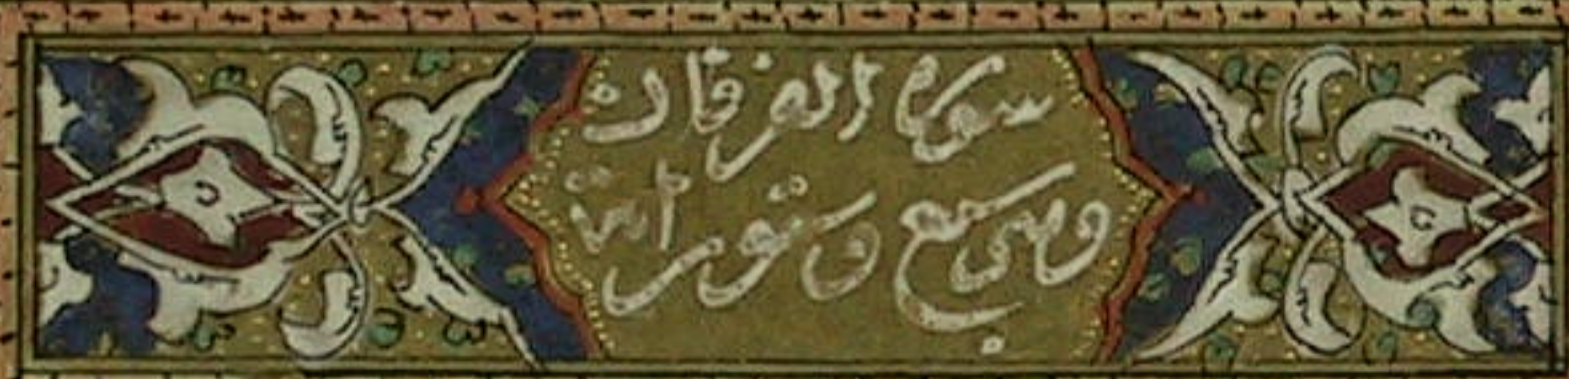 سورة الفرقان
وهي سبع وسبعون آية